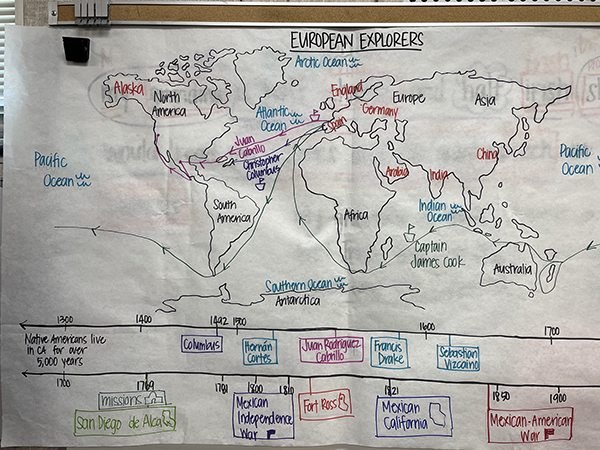 EUROPEAN EXPLORERS
Arctic Ocean
Alaska
North
America
England
Germany
Europe
Asia
Atlantic
Ocean
Spain
Pacific
Ocean
Juan
Cabrillo
Christopher
Columbus
China
Pacific
Ocean
Arabia
India
South
America
Africa
Indian
Ocean
Captain
James Cook
Australia
Southern Ocean
Antarctica
1300
1400
1492
1500
1600
1700
Native Americans live
in CA for over
5,000 years
Columbus
Hernán
Cortés
Juan Rodríguez
Cabrillo
Francis
Drake
Sebastian
Vizcaino
1700
1769
1781
1800
1810
1821
1850
1900
missions
San Diego de Alcalá
Mexican
Independence
War
Fort Ross
Mexican
California
Mexican-American
War